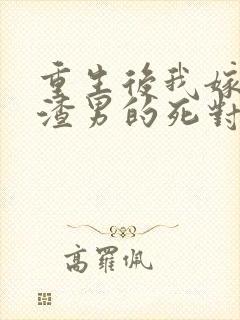 重生後我嫁
渣男的死對
高羅佩